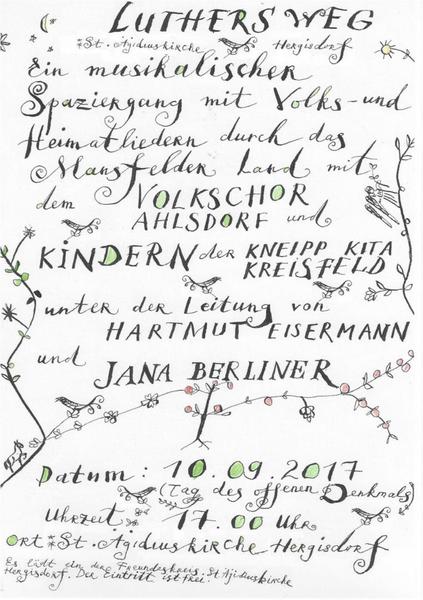 LUTHERS WEG
*St. Ägidiuskirche Hergisdorf
Ein musikalischer
Spaziergang mit Volks- und
Heimatliedern durch das
Mansfelder Land mit
dem VOLKSCHOR
AHLSDORF und
KINDERN der KNEIPP KITA
KREISFELD
unter der Leitung von
HARTMUT EISERMANN
und
JANA BERLINER
Datum: 10.09.2017
(Tag des offenen Denkmals)
Uhrzeit 17.00 Uhr
Ort *St. Ägidiuskirche Hergisdorf
Es lädt ein der Freundeskreis St. Ägidiuskirche
Hergisdorf. Der Eintritt ist frei.